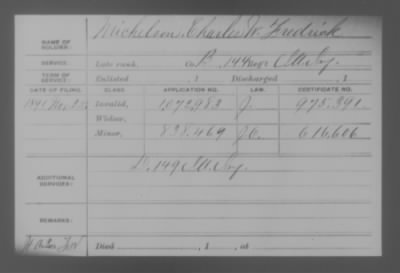 Michelson, Charles W. Fredrick
NAME OF SOLDIER:
SERVICE: Late rank, Co. D, 149 Reg't Ills. Inf.
TERM OF SERVICE: Enlisted , 1 Discharged , 1
DATE OF FILING. CLASS. APPLICATION NO. LAW. CERTIFICATE NO.
1891 Invalid, 1072983 J. 975.391
Widow,
Minor, 838.469 J.O. 616,606
D. 149 Ills. Inf.
ADDITIONAL SERVICES:
REMARKS:
Died , 1 , at